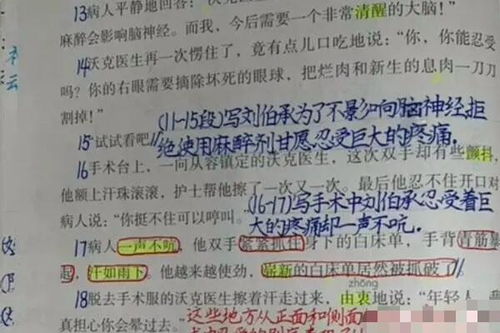 13病人平静地回答：“沃克医生，
麻醉会影响脑神经。而我，今后需要一个非常清醒的大脑！”
14沃克医生再一次愣住了，竟有点儿口吃地说：“你，你能忍受
吗？你的右眼需要摘除坏死的眼球，把烂肉和新生的息肉一刀刀
割掉！”
(11-15段)写刘伯承为了不影响向脑神经拒
15“试试看吧。”
绝使用麻醉剂甘愿忍受巨大的疼痛。
16手术台上，一向从容镇定的沃克医生，这次双手却有些颤抖，
他额上汗珠滚滚，护士帮他擦了一次又一次。最后他忍不住开口对
病人说：“你挺不住可以哼叫。”
(16-17)写手术中刘伯承忍受着巨
大的疼痛却一声不吭。
17病人一声不吭，他双手紧紧抓住身下的白床单，手背青筋暴
起，汗如雨下。他越来越使劲，崭新的白床单居然被抓破了。
zhōng
18脱去手术服的沃克医生擦着汗走过来，由衷地说：“年轻人，
真担心你会晕过去。”
这些地方从正面和侧面